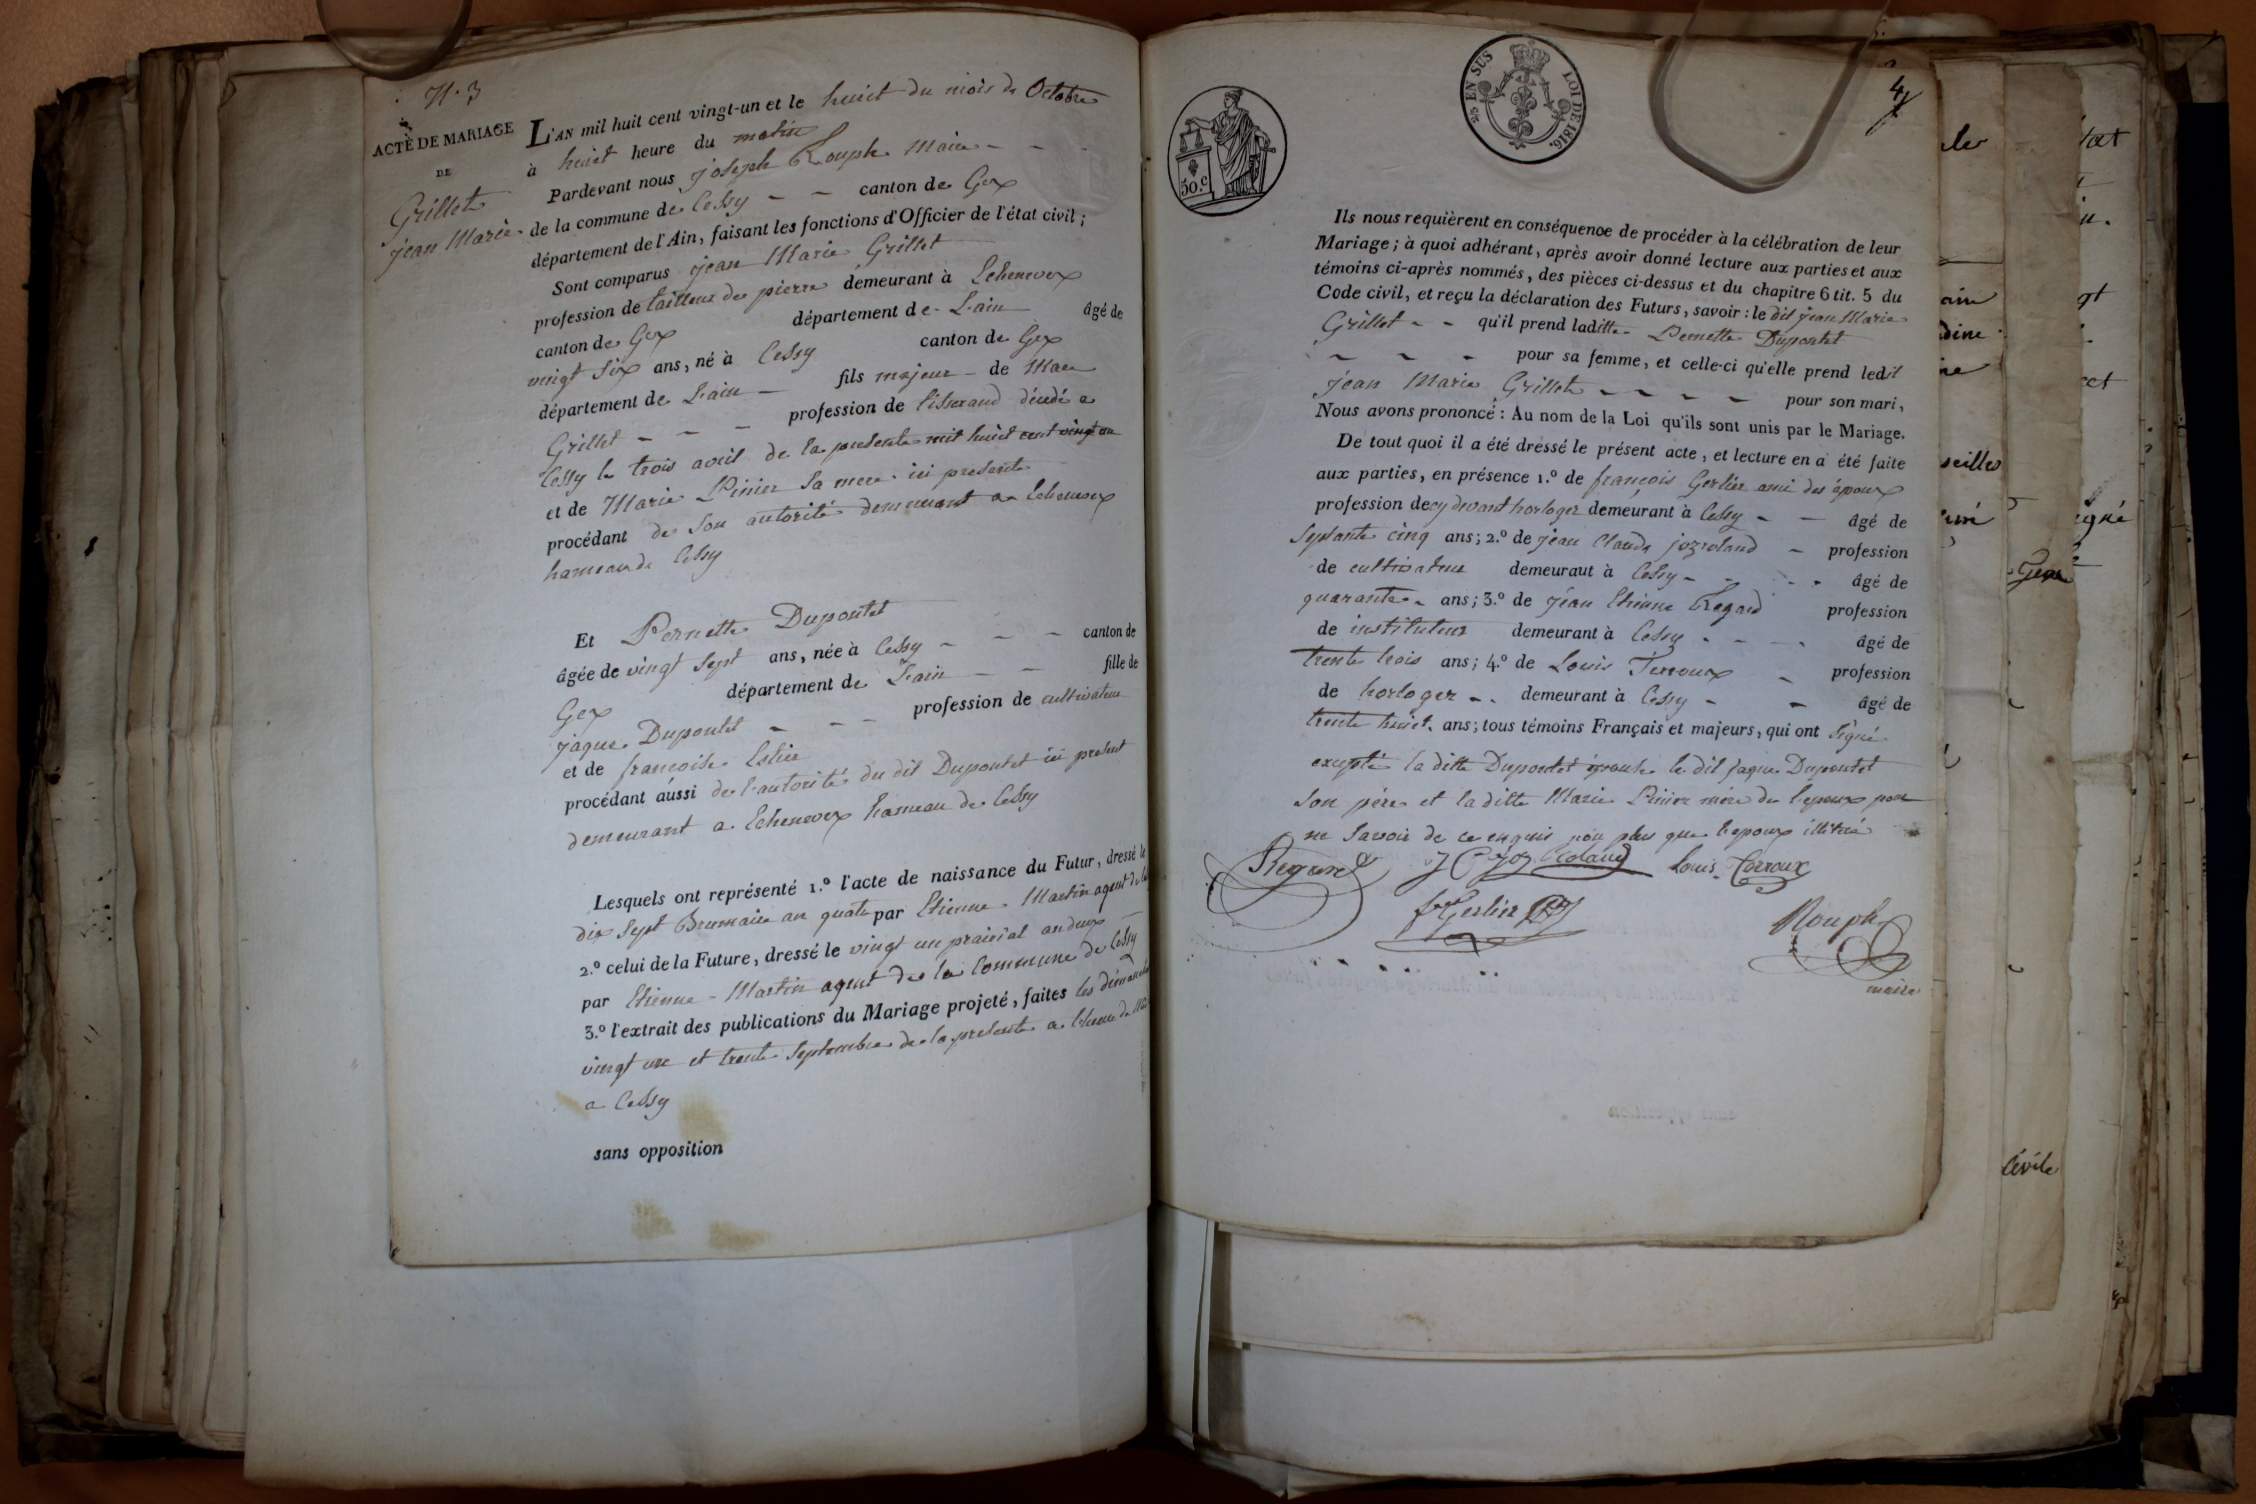 N.° 3
ACTE DE MARIAGE
DE
Grillet
jean Marie
L'AN mil huit cent vingt-un et le huict du mois de Octobre
à huict heure du matin
Pardevant nous joseph Rouph Maire
de la commune de Cessy canton de Gex
département de l'Ain, faisant les fonctions d'Officier de l'état civil;
Sont comparus jean Marie Grillet
profession de tailleur de pierre demeurant à Echenevex
canton de Gex département de L'ain âgé de
vingt six ans, né à Cessy canton de Gex
département de L'ain fils majeur de Marc
Grillet profession de tisserand décédé a
Cessy le trois avril de la presente mil huict cent vingt un
et de Marie Pinier sa mere ici presente
procédant de son autorité demeurant a Echenevex
hameau de Cessy
Et Pernette Dupontet
âgée de vingt sept ans, née à Cessy canton de
Gex département de L'ain fille de
jaque Dupontet profession de cultivateur
et de francoise Eslier
procédant aussi de l'autorité du dit Dupontet ici present
demeurant a Echenevex hameau de Cessy
Lesquels ont représenté 1.° l'acte de naissance du Futur, dressé le
dix sept Brumaire an quatre par Etienne Martin agent de
2.° celui de la Future, dressé le vingt un prairial an deux
par Etienne Martin agent de la Commune de Cessy
3.° l'extrait des publications du Mariage projeté, faites les
vingt et trente Septembre de la presente a
a Cessy
sans opposition
50.c
25 EN SUS LOI DE 1816.
4
Ils nous requièrent en conséquence de procéder à la célébration de leur
Mariage; à quoi adhérant, après avoir donné lecture aux parties et aux
témoins ci-après nommés, des pièces ci-dessus et du chapitre 6 tit. 5 du
Code civil, et reçu la déclaration des Futurs, savoir: le dit jean Marie
Grillet qu'il prend laditte Pernette Dupontet
pour sa femme, et celle-ci qu'elle prend ledit
jean Marie Grillet pour son mari,
Nous avons prononcé: Au nom de la Loi qu'ils sont unis par le Mariage.
De tout quoi il a été dressé le présent acte, et lecture en a été faite
aux parties, en présence 1.° de françois Gerlier ami des époux
profession de cy devant horloger demeurant à Cessy âgé de
septante cinq ans; 2.° de jean Claude jozroland profession
de cultivateur demeuraut à Cessy âgé de
quarante ans; 3.° de jean Etienne Regard profession
de instituteur demeurant à Cessy âgé de
trente trois ans; 4.° de Louis Terroux profession
de horloger demeurant à Cessy âgé de
trente huict ans; tous témoins Français et majeurs, qui ont signé
excepté la ditte Dupontet épouse le dit jaque Dupontet
son père et la ditte Marie Pinier mère de l'epoux pour
ne savoir de ce enquis non plus que l'epoux illitéré
Regard J C Joz Roland Louis Terroux
fr Gerlier
Rouph
maire
Civile